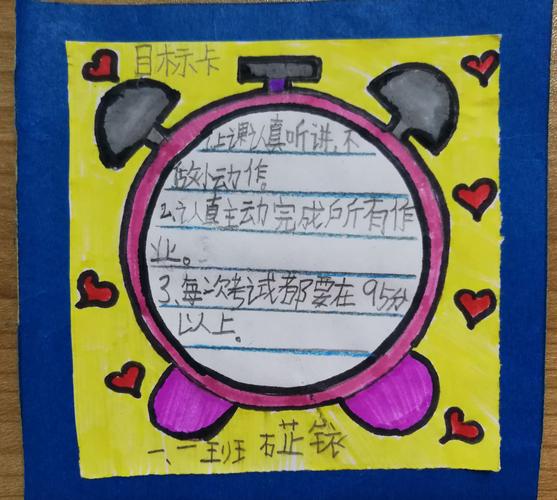 目标卡
1.上课认真听讲,不
做小动作。
2.认真主动完成所有作
业。
3、每次考试都要在95分
以上。
一、一班